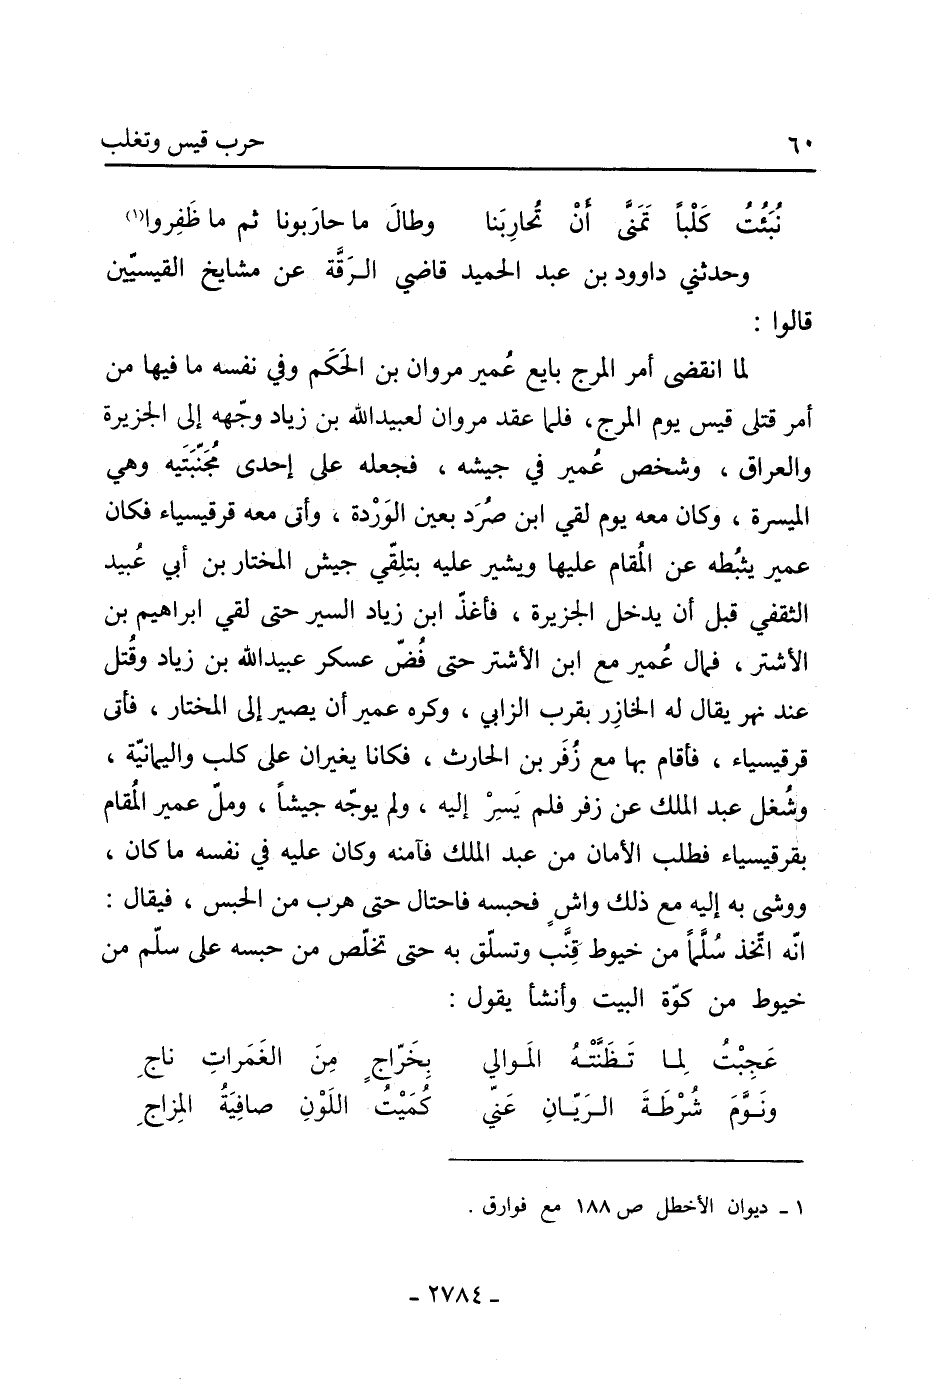 ٦٠ حرب قيس وتغلب
نُبِّئْتُ كَلْباً تَمَنَّى أَنْ تُحارِبَنا وطالَ ما حارَبونا ثم ما ظَفِروا(١)
وحدثني داوود بن عبد الحميد قاضي الرَقَّة عن مشايخ القيسيّين
قالوا :
لما انقضى أمر المرج بايع عُمير مروان بن الحَكَم وفي نفسه ما فيها من
أمر قتلى قيس يوم المرج، فلما عقد مروان لعبيدالله بن زياد وجّهه إلى الجزيرة
والعراق ، وشخص عُمير في جيشه ، فجعله على إحدى مُجَنَّبَتَيه وهي
الميسرة ، وكان معه يوم لقي ابن صُرَد بعين الوَرْدة ، وأتى معه قرقيسياء فكان
عمير يثبُطه عن المُقام عليها ويشير عليه بتلِقّي جيش المختار بن أبي عُبيد
الثقفي قبل أن يدخل الجزيرة ، فأغذّ ابن زياد السير حتى لقي ابراهيم بن
الأشتر ، فمال عُمير مع ابن الأشتر حتى فُضّ عسكر عبيدالله بن زياد وقُتل
عند نهر يقال له الخازِر بقرب الزابي ، وكره عمير أن يصير إلى المختار ، فأتى
قرقيسياء ، فأقام بها مع زُفَر بن الحارث ، فكانا يغيران على كلب واليمانيّة ،
وشُغل عبد الملك عن زفر فلم يَسِرْ إليه ، ولم يوجّه جيشاً ، وملّ عمير المُقام
بقرقيسياء فطلب الأمان من عبد الملك فآمنه وكان عليه في نفسه ما كان ،
ووشى به إليه مع ذلك واشٍ فحبسه فاحتال حتى هرب من الحبس ، فيقال :
انّه اتّخذ سُلَّماً من خيوط قِنَّب وتسلّق به حتى تخلّص من حبسه على سلّم من
خيوط من كوّة البيت وأنشأ يقول :
عَجِبْتُ لِما تَظَنَّتْهُ المَوالي بِخَرّاجٍ مِنَ الغَمَراتِ ناجِ
ونَوَّمَ شُرْطَةَ الرَيّانِ عَنّي كُمَيْتُ اللَوْنِ صافِيَةُ المِزاجِ
١ ـ ديوان الأخطل ص ١٨٨ مع فوارق .
ـ ٢٧٨٤ ـ